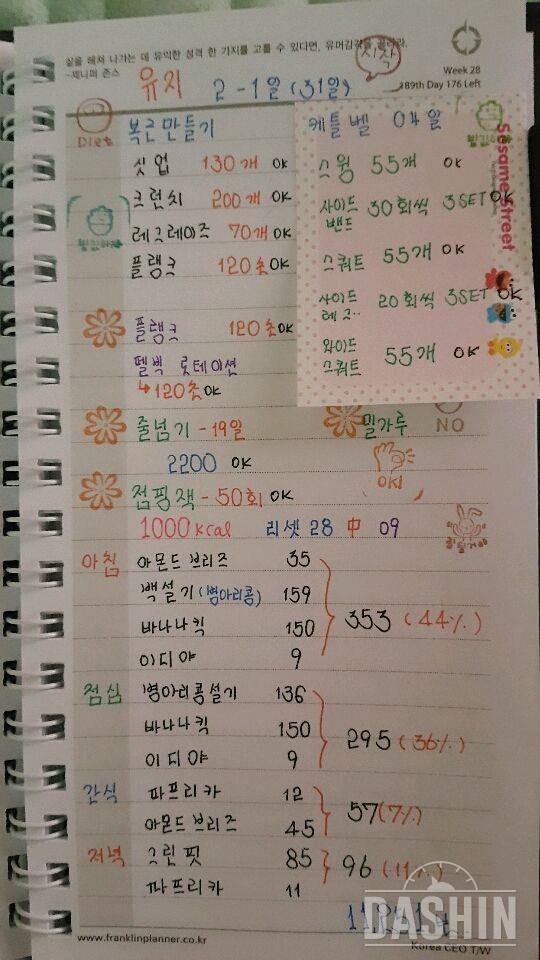 삶을 헤쳐 나가는 데 유익한 성격 한 가지를 고를 수 있다면, 유머감각을 골라라.
-제니퍼 존스
시작
Week 28
189th Day 176 Left
유지 2-1일 (31일)
Diet
복근만들기
싯업 130개 OK
크런치 200개 OK
레그레이즈 70개 OK
플랭크 120초 OK
플랭크 120초 OK
펠빅 롯테이션
↳ 120초 OK
줄넘기 - 19일
2200 OK
점핑잭 - 50회 OK
케틀벨 04일
Sesame Street
스윙 55개 OK
사이드 밴드 30회씩 3SET OK
스쿼트 55개 OK
사이드 레그.. 20회씩 3SET OK
와이드 스쿼트 55개 OK
밀가루 NO
OK!
1000 Kcal 리셋 28 中 09
아침 아몬드 브리즈 35
백설기 (병아리콩) 159
바나나킥 150
이디야 9
353 (44%)
점심 병아리콩설기 136
바나나킥 150
이디야 9
295 (36%)
간식 파프리카 12
아몬드 브리즈 45
57 (7%)
저녁 그린 핏 85
파프리카 11
96 (11%)
DASHIN
www.franklinplanner.co.kr
Korea CEO T/W